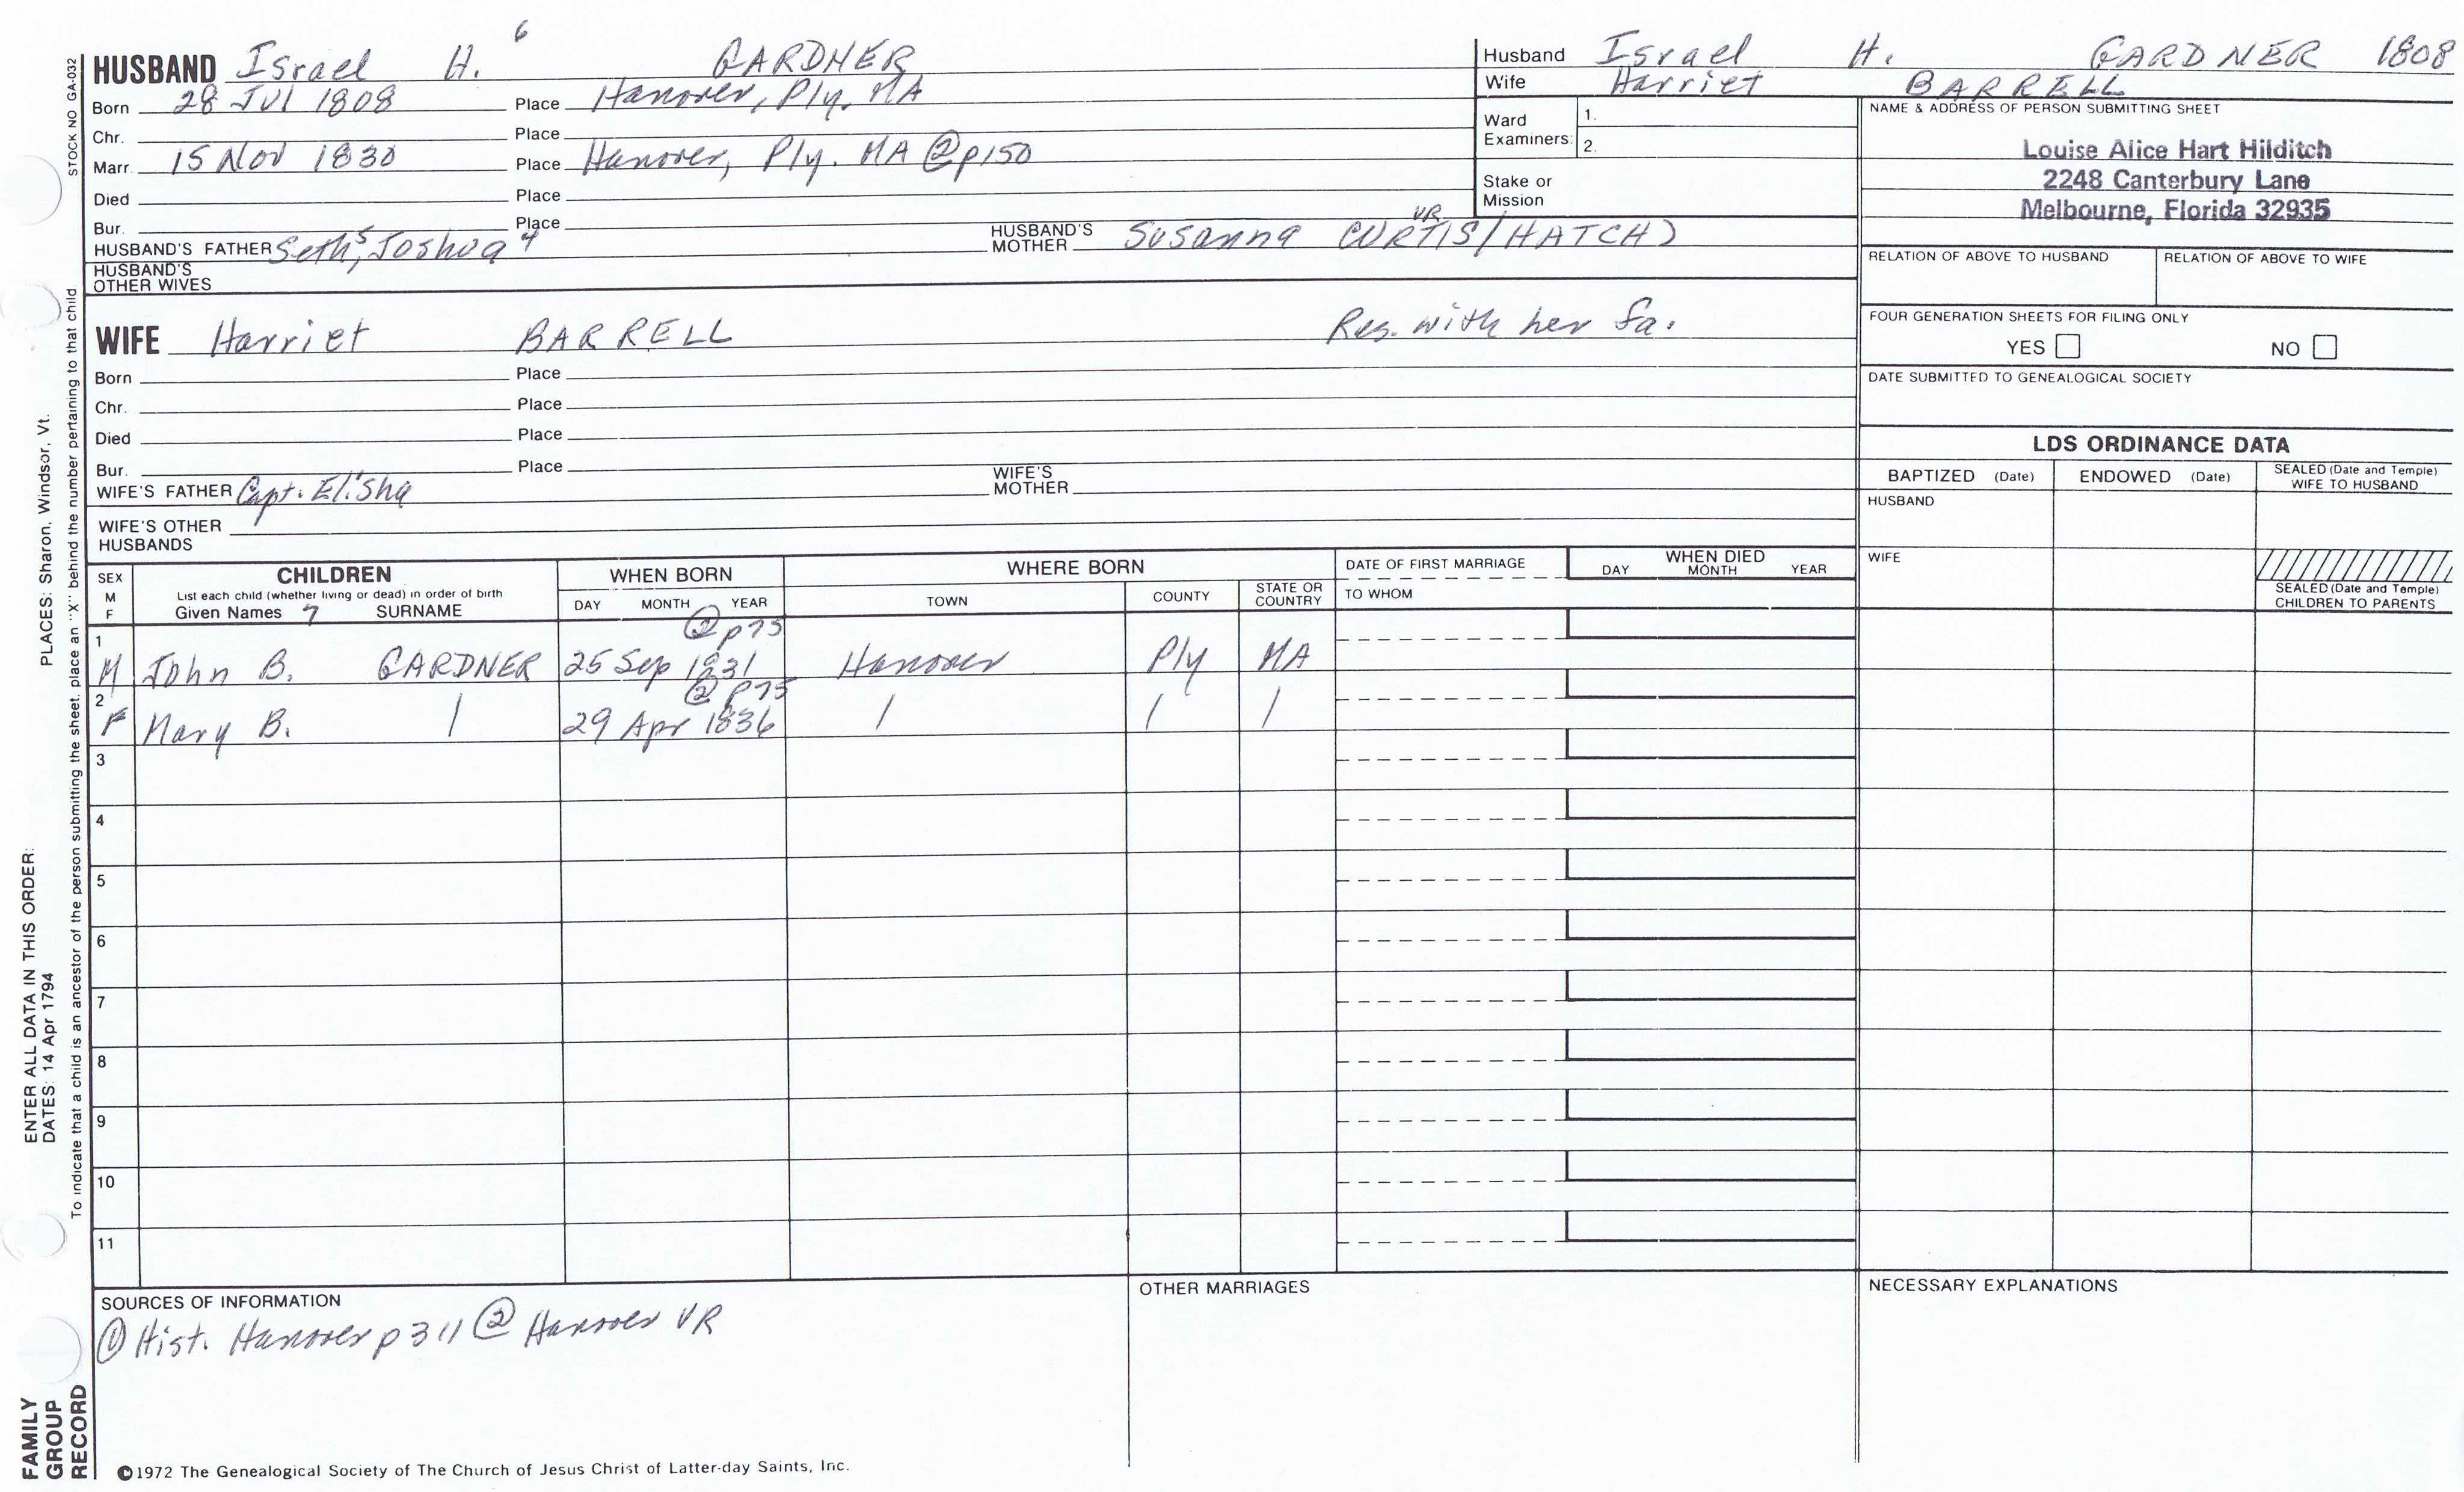 STOCK NO GA-032
HUSBAND Israel H. 6 GARDNER
Born 28 Jul 1808 Place Hanover, Ply. MA
Chr. Place
Marr. 15 Nov 1830 Place Hanover, Ply. MA ② p150
Died Place
Bur. Place
HUSBAND'S FATHER Seth5, Joshua4 HUSBAND'S MOTHER Susanna CURTIS VR /HATCH)
HUSBAND'S OTHER WIVES
WIFE Harriet BARRELL Res. with her fa.
Born Place
Chr. Place
Died Place
Bur. Place
WIFE'S FATHER Capt. Elisha WIFE'S MOTHER
WIFE'S OTHER HUSBANDS
Husband Israel H. GARDNER 1808
Wife Harriet BARRELL
Ward Examiners: 1.
2.
Stake or Mission
NAME & ADDRESS OF PERSON SUBMITTING SHEET
Louise Alice Hart Hilditch
2248 Canterbury Lane
Melbourne, Florida 32935
RELATION OF ABOVE TO HUSBAND RELATION OF ABOVE TO WIFE
FOUR GENERATION SHEETS FOR FILING ONLY
YES NO
DATE SUBMITTED TO GENEALOGICAL SOCIETY
LDS ORDINANCE DATA
BAPTIZED (Date) ENDOWED (Date) SEALED (Date and Temple) WIFE TO HUSBAND
HUSBAND
WIFE
SEALED (Date and Temple) CHILDREN TO PARENTS
SEX M F CHILDREN WHEN BORN WHERE BORN DATE OF FIRST MARRIAGE WHEN DIED
List each child (whether living or dead) in order of birth
Given Names 7 SURNAME DAY MONTH YEAR TOWN COUNTY STATE OR COUNTRY TO WHOM DAY MONTH YEAR
② p75
1 M John B. GARDNER 25 Sep 1831 Hanover Ply MA
② p75
2 F Mary B. / 29 Apr 1836 / / /
3
4
5
6
7
8
9
10
11
SOURCES OF INFORMATION OTHER MARRIAGES NECESSARY EXPLANATIONS
① Hist. Hanover p 311 ② Hanover VR
©1972 The Genealogical Society of The Church of Jesus Christ of Latter-day Saints, Inc.
FAMILY GROUP RECORD
ENTER ALL DATA IN THIS ORDER:
DATES: 14 Apr 1794 PLACES: Sharon, Windsor, Vt.
To indicate that a child is an ancestor of the person submitting the sheet, place an "X" behind the number pertaining to that child